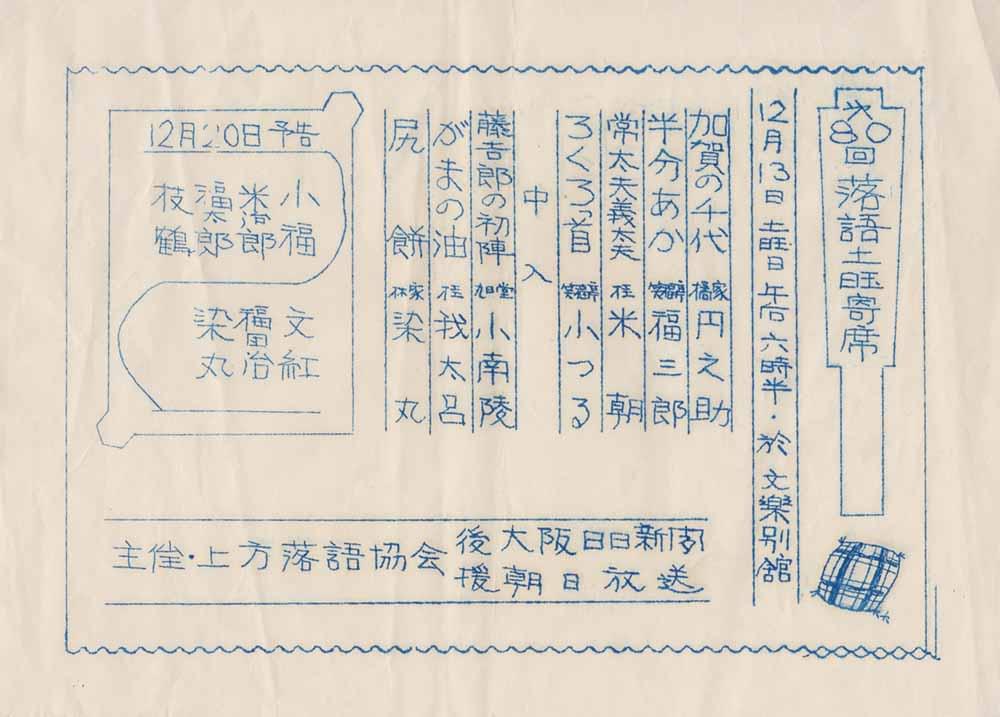 第80回落語土曜寄席
12月13日 土曜日 午后 六時半・於 文楽別館
加賀の千代 橘家 円之助
半分あか 笑福亭 福三郎
常太夫義太夫 桂 米朝
ろくろ首 笑福亭 小つる
中入
藤吉郎の初陣 旭堂 小南陵
がまの油 桂 我太呂
尻餅 林家 染丸
12月20日 予告
小福 文紅
米治郎 福団治
福太郎 染丸
枝鶴
主催・上方落語協会 後援 大阪日日新聞
朝日放送